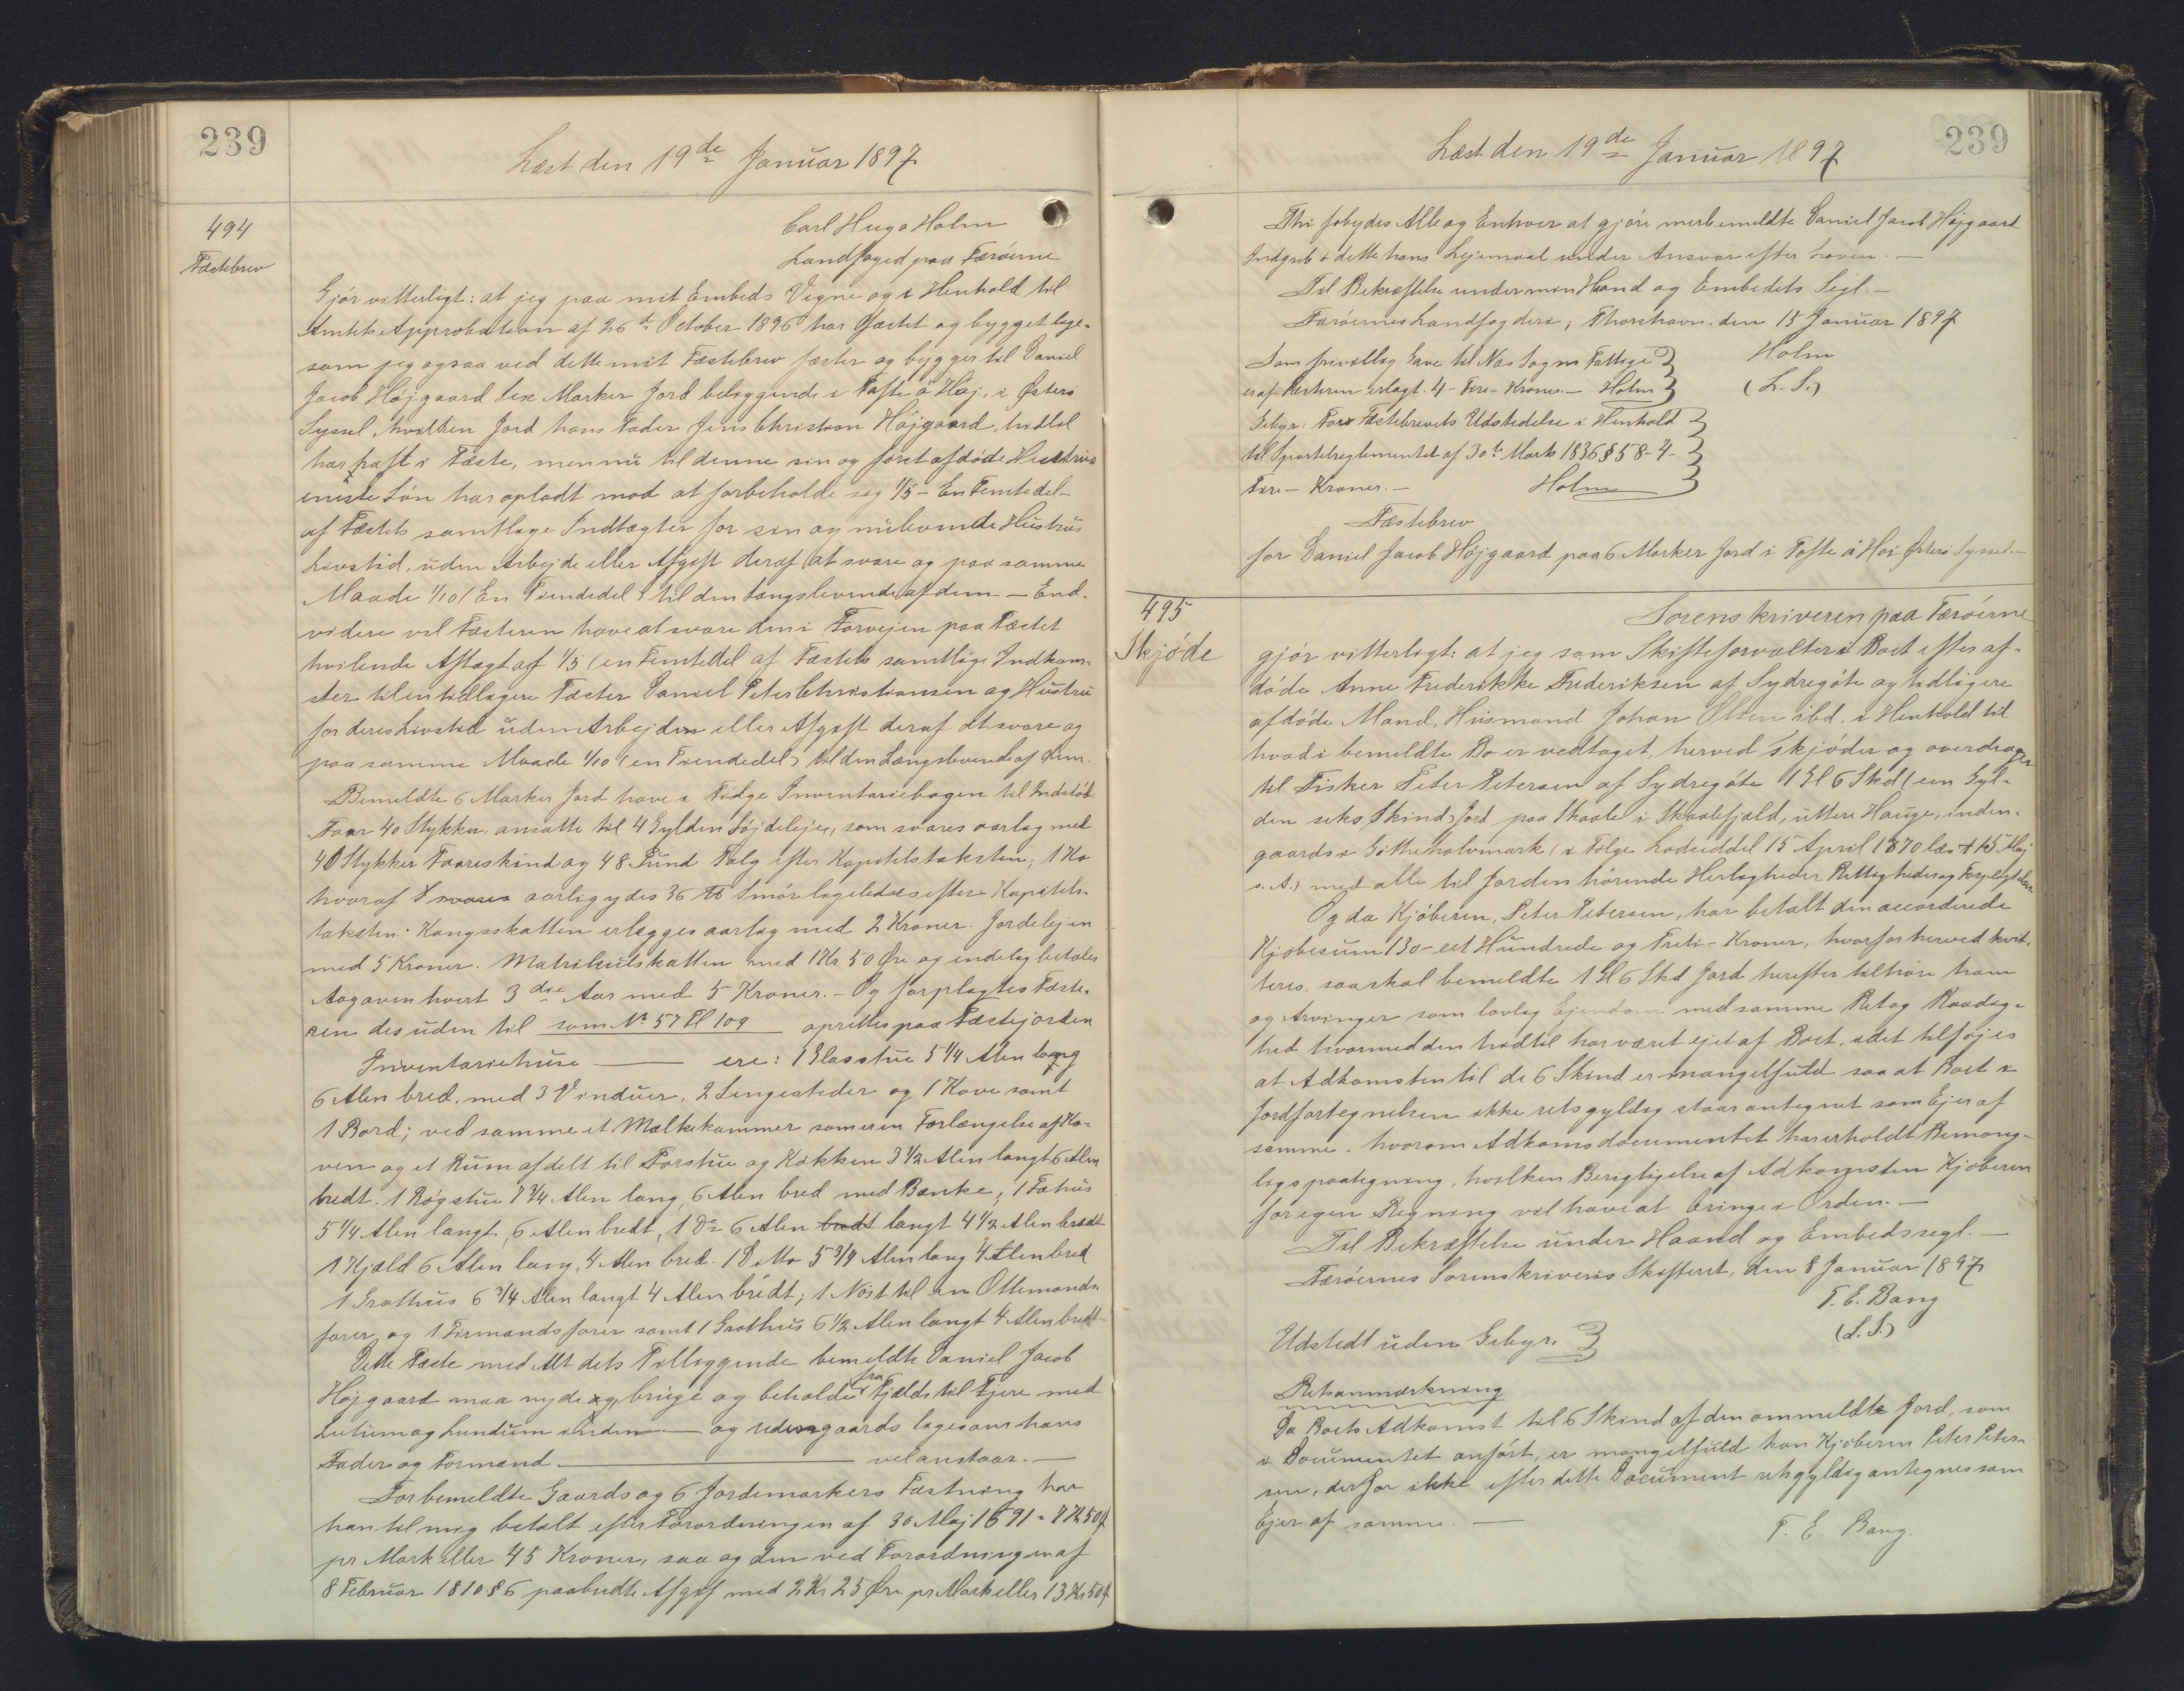 239
Læst den 19de Januar 1897
494
Fæstebrev
Carl Hugo Holm
Landfoged paa Færöerne
Gjör vitterligt: at jeg paa mit Embeds Vegne og i Henhold til
Amtets Approbation af 26de October 1896 har fæstet og bygget lige-
som jeg ogsaa ved dette mit Fæstebrev fæster og bygger til Daniel
Jacob Höjgaard Sex Marker Jord beliggende i Tofte á Höj, i Østerö
Syssel hvilken Jord hans Fader Jens Christian Höjgaard, hidtil
har haft i Fæste, men nu til denne sin og först afdöde Hustrus
eneste Sön har opladt mod at forbeholde sig 1/5 - En Femtedel-
af Fæstets samtlige Indtægter for sin og nulevende Hustrus
Livstid, uden Arbejde eller Afgift deraf at svare og paa samme
Maade 1/10 (En Tiendedel) til den Længstlevende af dem - End-
videre vil Fæsteren have at svare den i Forvejen paa Fæstet
hvilende Aftægt af 1/5 (en Femtedel af Fæstets samtlige Indkom-
ster til en tidligere Fæster Daniel Peter Christiansen og Hustru
for deres Livstid uden Arbejden eller Afgift deraf at svare og
paa samme Maade 1/10 (en Tiendedel) til den Længstlevende af dem.
Bemeldte 6 Marker Jord have i Fölge Inventariebogen til Indstöd
Faar 40 Stykker, ansatte til 4 Gylden Löjdeleje, som svares aarlig med
40 Stykker Faareskind og 48 Pund Talg efter Kapitelstaksten; 1 Ko
hvoraf svares aarlig ydes 36 ℔ Smör ligeledes efter Kapitels-
taksten. Kongsskatten erlægges aarlig med 2 Kroner. Jordelejen
med 5 Kroner. Matrikulskatten med 1 Kr 50 Øre og endelig betales
Aagaven hvert 3die Aar med 5 Kroner. - Og forpligtes Fæste-
ren desuden til som No 57 Fl 109 oprettes paa Fæstejorden
Inventariehuse ere: 1 Glasstue 5 1/4 Alen lang
6 Alen bred, med 3 Vinduer, 2 Sengesteder og 1 Kove samt
1 Bord; ved samme et Mælkekammer som er en Forlængelse af Ko-
ven og et Rum afdelt til Forstue og Kökken 3 1/2 Alen langt 6 Alen
bredt. 1 Rögstue 7 3/4 Alen lang, 6 Alen bred med Bænke; 1 Fæhus
5 1/4 Alen langt, 6 Alen bredt, 1 Do 6 Alen bredt langt 4 1/2 Alen bredt
1 Hjald 6 Alen lang, 4 Alen bred. 1 Ditto 5 3/4 Alen lang 4 Alen bred
1 Grothus 6 3/4 Alen langt 4 Alen bredt; 1 Nöst til en Ottemands-
farer og 1 Firmandsfarer samt 1 Grothus 6 1/2 Alen langt 4 Alen bredt-
Dette Fæste med Alt dets Tilliggende bemeldte Daniel Jacob
Höjgaard maa nyde og bruge og beholde fra Fjælds til Fjere med
Lutum og Lundum inden - og udengaards ligesom hans
Fader og Formænd. vel anstaar. -
For bemeldte Gaards og 6 Jordemarkers Fæstning har
han til mig betalt efter Forordningen af 30 Maj 1691 = 7 Kr 50 Ø
pr Mark eller 45 Kroner, saa og den ved Forordningen af
8 Februar 1810 § 6 paabudte Afgift med 2 Kr 25 Øre pr Mark eller 13 Kr 50 Ø
239
Læst den 19de Januar 1897
Thi fobydes Alle og Enhver at gjöre merbemeldte Daniel Jacob Höjgaard
Indgreb i dette hans Lejemaal under Ansvar efter Loven. -
Til Bekræftelse under min Haand og Embedets Segl. -
Færöernes Landfogderi, Thorshavn, den 15 Januar 1897
Som frivillig Gave til Næs Sogns Fattige
er af Fæsteren erlagt. 4 - Fire - Kroner. - Holm
Holm
(L. S.)
Gebyr: For Fæstebrevets Udstedelse i Henhold
til Sportelreglementet af 30te Marts 1836 § 58 - 4 -
Fire - Kroner. - Holm
Fæstebrev
for Daniel Jacob Höjgaard paa 6 Marker Jord i Tofte á Höi Østerö Syssel. -
495
Skjöde
Sorenskriveren paa Færöerne
gjör vitterligt: at jeg som Skifteforvalter i Boet efter af-
döde Anne Frederikke Frederiksen af Sydregöte og tidligere
afdöde Mand, Husmand Johan Olsen ibd. i Henhold til
hvad i bemeldte Bo er vedtaget, herved skjöder og overdrager
til Fisker Peter Petersen af Sydregöte 1 Gl 6 Skd (een Gyl-
den seks Skind) Jord paa Skaale i Skaalefjæld, uttere Hauge, inden-
gaards i Götteholvmark (i Fölge Lodseddel 15 April 1870 læst 15 Maj
s. A.) med alle til Jorden hörende Herligheder Rettigheder og Forpligtelser
Og da Kjöberen, Peter Petersen, har betalt den accorderede
Kjöbesum 130 - eet Hundrede og Treti - Kroner, hvorfor herved kvit-
teres, saa skal bemeldte 1 Gl 6 Skd Jord herefter tilhöre ham
og Arvinger som lovlig Ejendom med samme Ret og Raadig-
hed hvormed den hidtil har været ejet af Boet, idet tilföjes
at Adkomsten til de 6 Skind er mangelfuld saa at Boet i
Jordfortegnelsen ikke retsgyldig staar antegnet som Ejer af
samme, hvorom Adkomsdocumentet har erholdt Bemong-
ligspaategning, hvilken Berigtigelse af Adkomsten Kjöberen
for egen Regning vil have at bringe i Orden. -
Til Bekræftelse under Haand og Embedssegl. -
Færöernes Sorenskriveris Skifteret, den 8 Januar 1897
T. E. Bang
(L. S.)
Udstedt uden Gebyr.
Retsanmærkning
Da Boets Adkomst til 6 Skind af den ommeldte Jord, som
i Documentet anfört, er mangelfuld kan Kjöberen Peter Peter-
sen, derfor ikke efter dette Document retsgyldig antegnes som
Ejer af samme. -
T. E. Bang.